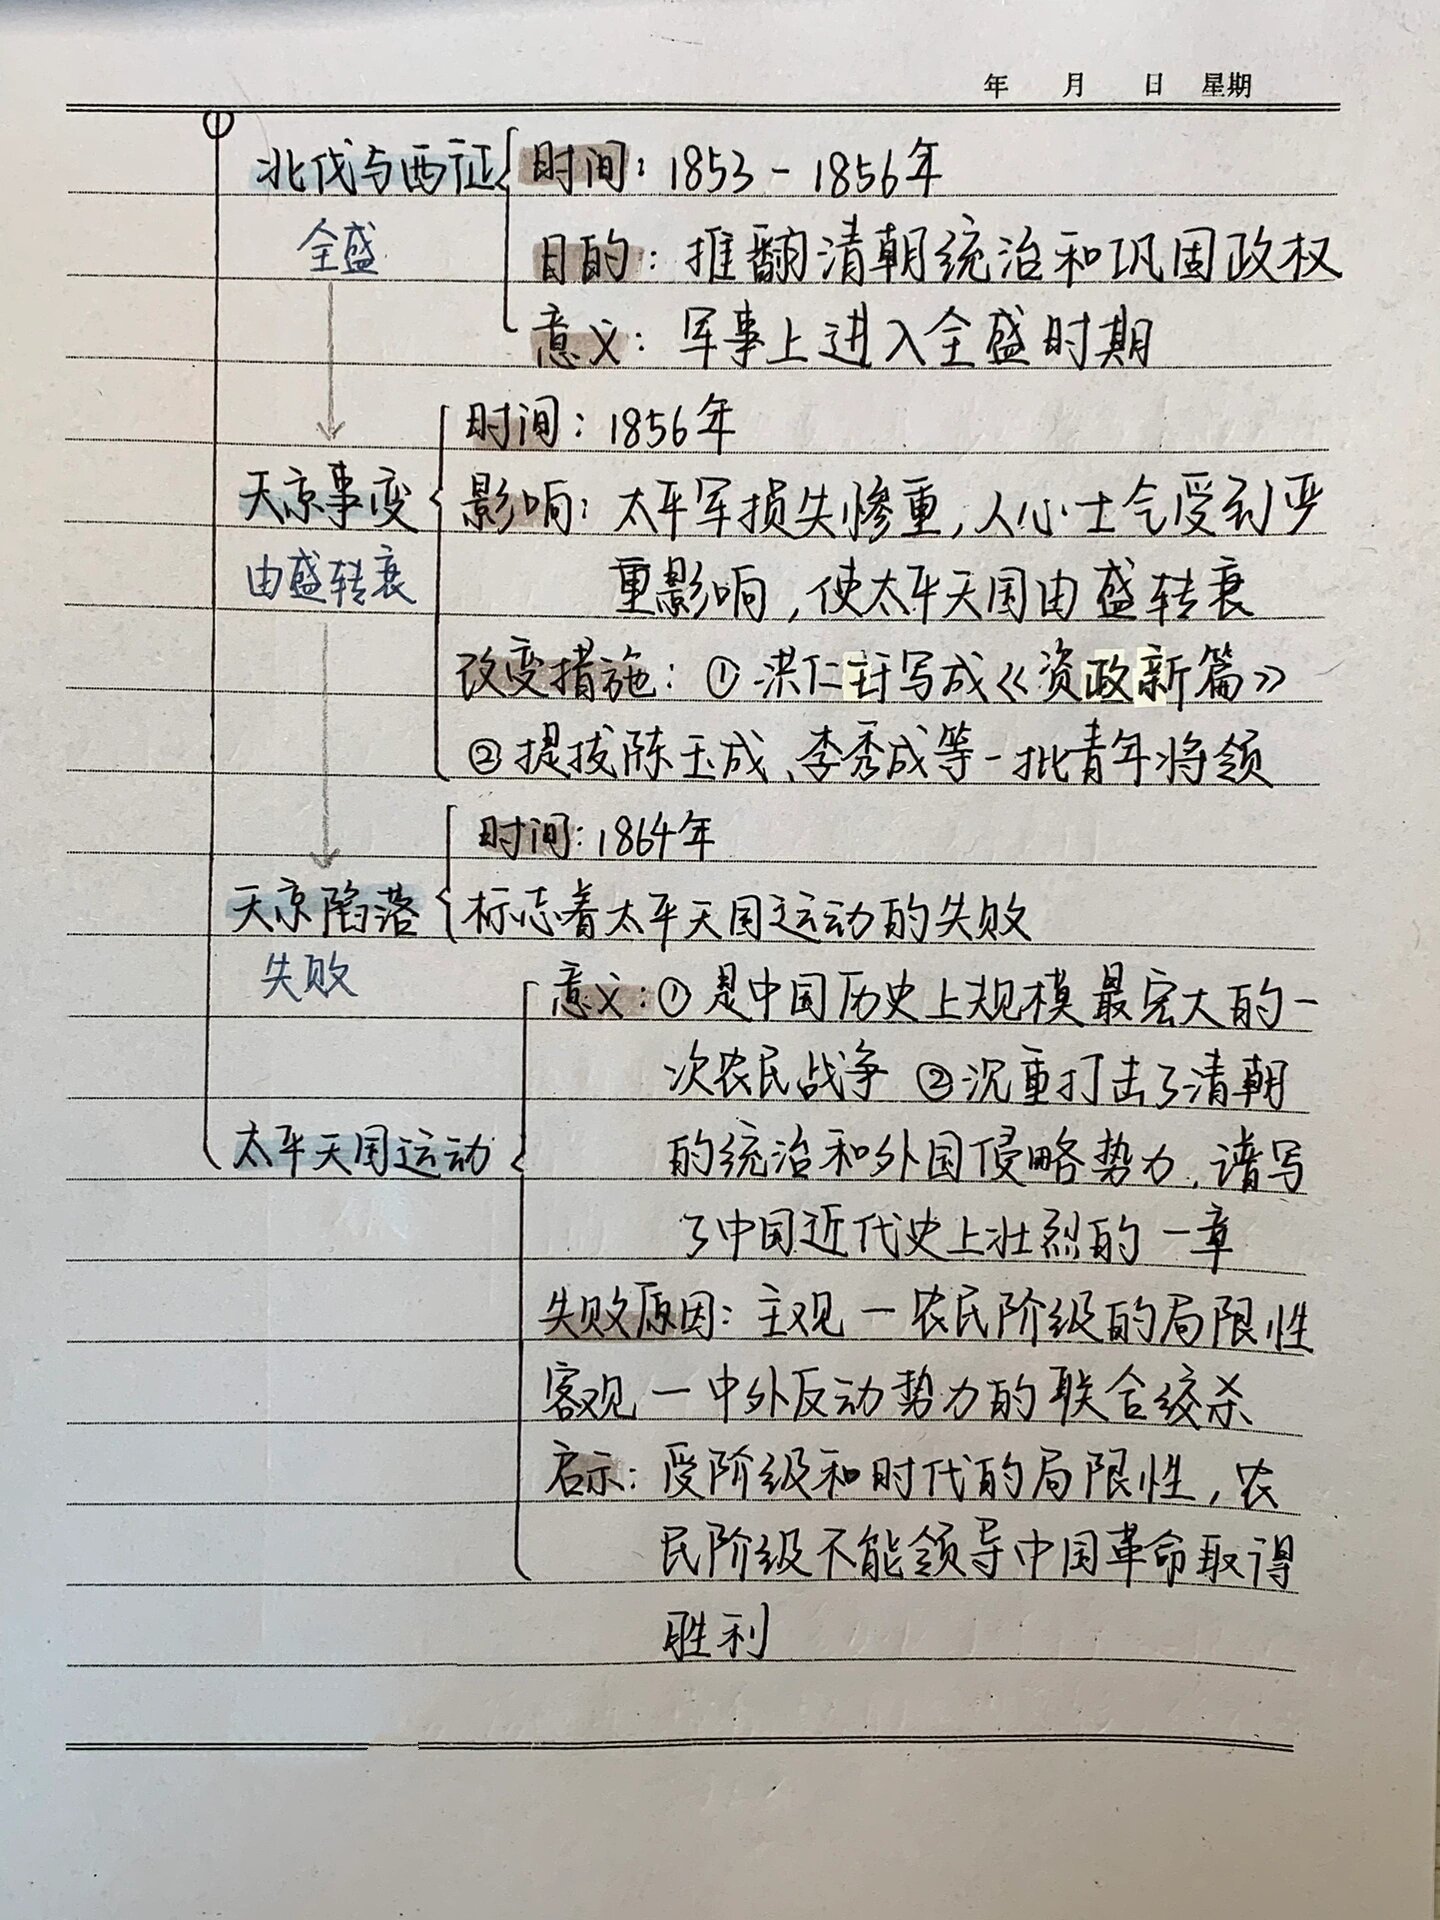 年 月 日 星期
北伐与西征 时间：1853-1856年
全盛 目的：推翻清朝统治和巩固政权
意义：军事上进入全盛时期
时间：1856年
天京事变 影响：太平军损失惨重，人心士气受到严
由盛转衰 重影响，使太平天国由盛转衰
改变措施：①洪仁玕写成《资政新篇》
②提拔陈玉成、李秀成等一批青年将领
时间：1864年
天京陷落 标志着太平天国运动的失败
失败 意义：①是中国历史上规模最宏大的一
次农民战争 ②沉重打击了清朝
太平天国运动 的统治和外国侵略势力，谱写
了中国近代史上壮烈的一章
失败原因：主观一农民阶级的局限性
客观一中外反动势力的联合绞杀
启示：受阶级和时代的局限性，农
民阶级不能领导中国革命取得
胜利